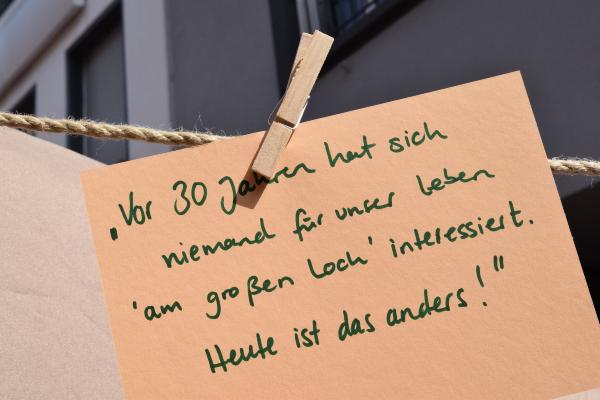 „Vor 30 Jahren hat sich
niemand für unser Leben
'am großen Loch' interessiert.
Heute ist das anders!"